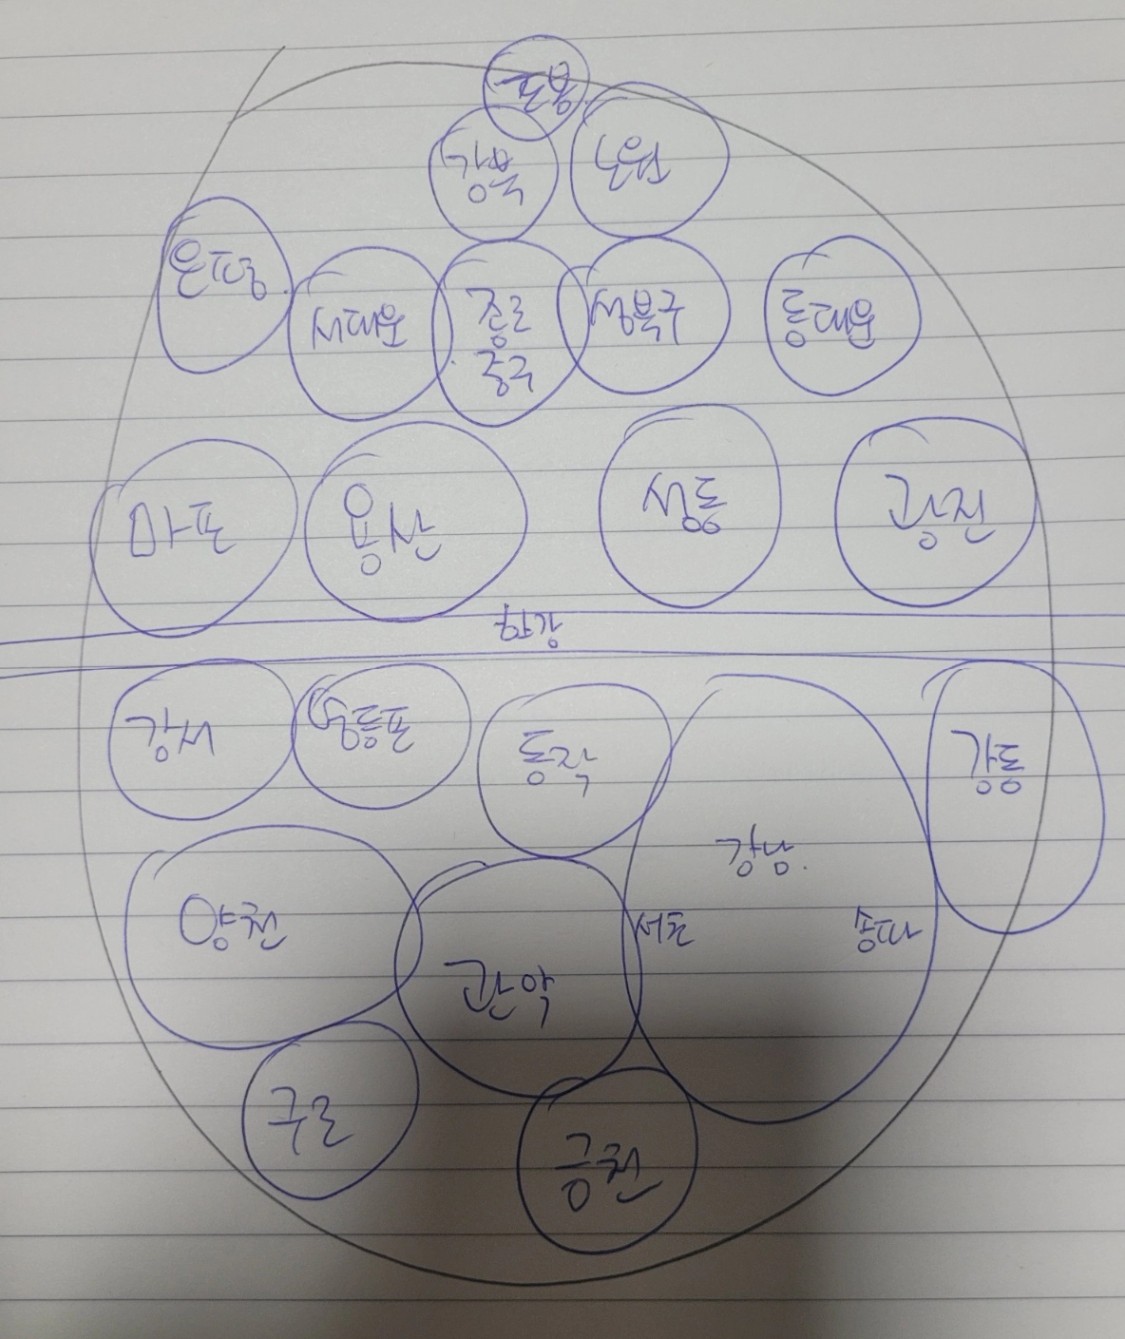 도봉
강북
노원
은평
서대문
종로
중구
성북구
동대문
마포
용산
성동
광진
강서
영등포
동작
강남
서초
송파
강동
양천
관악
구로
금천